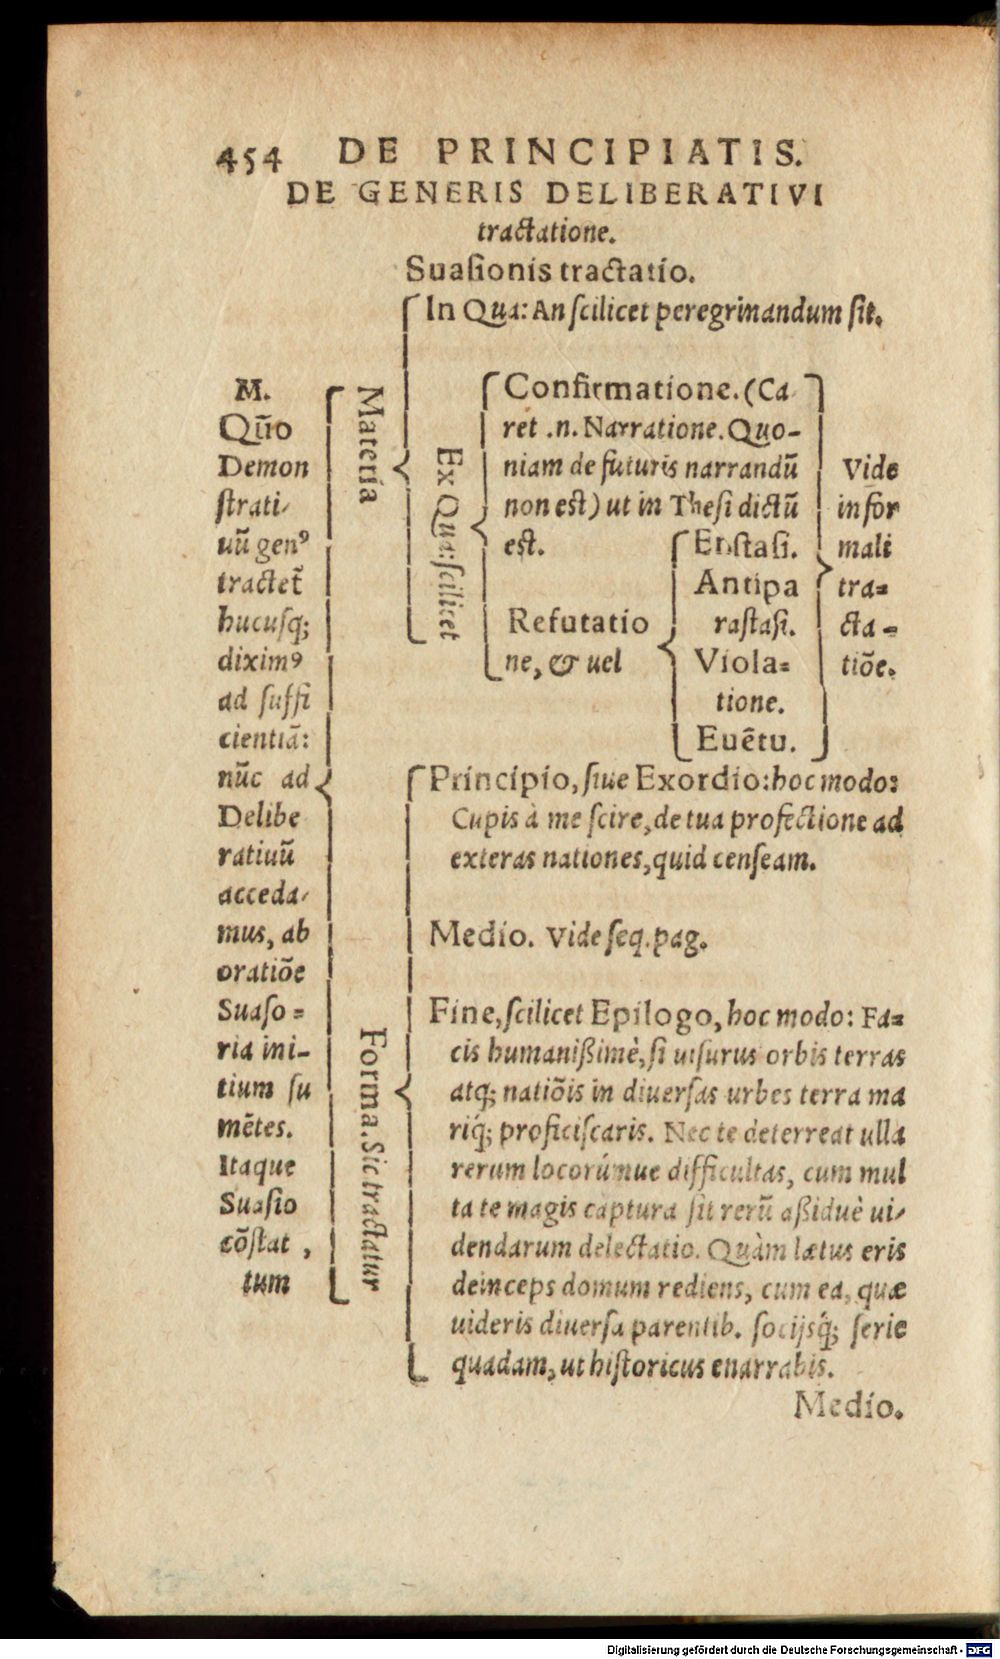 454 DE PRINCIPIATIS.
DE GENERIS DELIBERATIVI
tractatione.
Suasionis tractatio.
M.
Quō
Demon
ſtrati-
uū genꝰ
tractet̄
hucuſq;
diximꝰ
ad ſuffi
cientiā:
nūc ad
Delibe
ratiuū
acceda-
mus, ab
oratiōe
Suaſo=
ria ini-
tium ſu
mētes.
Itaque
Suaſio
cōſtat,
tum
Materia
In Qua: An ſcilicet peregrinandum ſit.
Ex Qua: ſcilicet
Confirmatione. (Ca
ret .n. Narratione. Quo-
niam de futuris narrandū
non est) ut in Theſi dictū
est.
Refutatio
ne, & uel
Enſtaſi.
Antipa
raſtaſi.
Viola=
tione.
Euētu.
Vide
in for
mali
tra=
cta=
tiōe.
Forma. Sic tractatur
Principio, ſiue Exordio: hoc modo:
Cupis à me ſcire, de tua profectione ad
exteras nationes, quid cenſeam.
Medio. Vide ſeq. pag.
Fine, ſcilicet Epilogo, hoc modo: Fa=
cis humaniſſimè, ſi uiſurus orbis terras
atq; natiōis in diuerſas urbes terra ma
riq́; proficiſcaris. Nec te deterreat ulla
rerum locorúmue difficultas, cum mul
ta te magis captura ſit rerū aſſiduè ui-
dendarum delectatio. Quàm lætus eris
deinceps domum rediens, cum ea, quæ
uideris diuerſa parentib. ſocijsq́; ſerie
quadam, ut hiſtoricus enarrabis.
Medio.
Digitalisierung gefördert durch die Deutsche Forschungsgemeinschaft - DFG